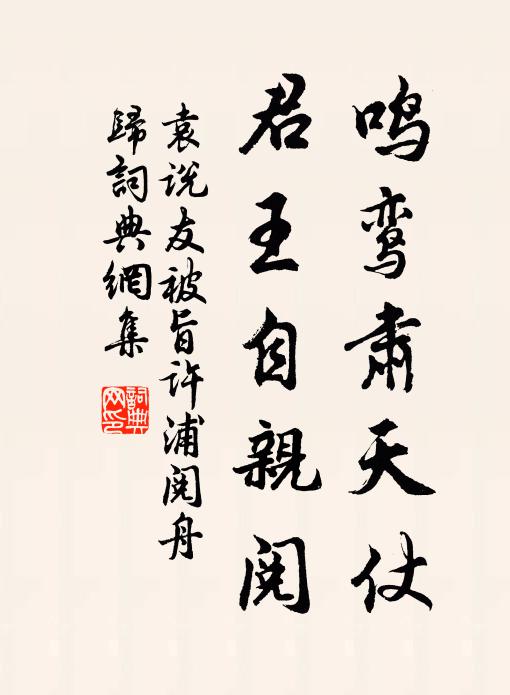 鸣鸾肃天仗
君王自親阅
袁说友被旨许浦阅舟
歸詞典網集
詞典网印